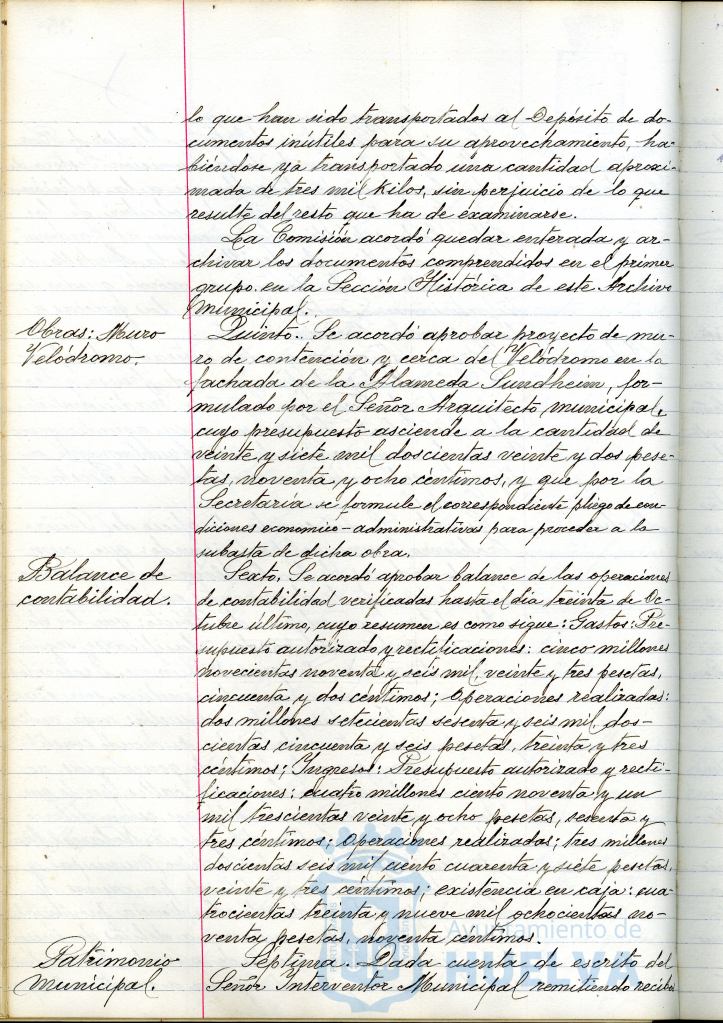 lo que han sido transportados al Depósito de do-
cumentos inútiles para su aprovechamiento, ha-
biéndose ya transportado una cantidad aproxi-
mada de tres mil kilos, sin perjuicio de lo que
resulte del resto que ha de examinarse.
La Comisión acordó quedar enterada y ar-
chivar los documentos comprendidos en el primer
grupo en la Sección Histórica de este Archivo
Municipal.
Obras: Muro
Velódromo.
Quinto. Se acordó aprobar proyecto de mu-
ro de contención y cerca del Velódromo en la
fachada de la Alameda Sundheim, for-
mulado por el Señor Arquitecto municipal,
cuyo presupuesto asciende a la cantidad de
veinte y siete mil doscientas veinte y dos pese-
tas, noventa y ocho céntimos, y que por la
Secretaría se formule el correspondiente pliego de con-
diciones económico-administrativas para proceder a la
subasta de dicha obra.
Balance de
contabilidad.
Sexto. Se acordó aprobar balance de las operaciones
de contabilidad verificadas hasta el dia treinta de Oc-
tubre último, cuyo resumen es como sigue: Gastos: Pre-
supuesto autorizado y rectificaciones: cinco millones
novecientas noventa y seis mil, veinte y tres pesetas,
cincuenta y dos céntimos; Operaciones realizadas:
dos millones setecientas sesenta y seis mil, dos-
cientas cincuenta y seis pesetas, treinta y tres
céntimos; Ingresos: Presupuesto autorizado y recti-
ficaciones: cuatro millones ciento noventa y un
mil trescientas veinte y ocho pesetas, sesenta y
tres céntimos; Operaciones realizadas; tres millones
doscientas seis mil ciento cuarenta y siete pesetas,
veinte y tres céntimos; existencia en caja: cua-
trocientas treinta y nueve mil ochocientas no-
venta pesetas, noventa céntimos.
Patrimonio
Municipal.
Septima. Dada cuenta de escrito del
Señor Interventor Municipal remitiendo recibos
Ayuntamiento de
HUELVA